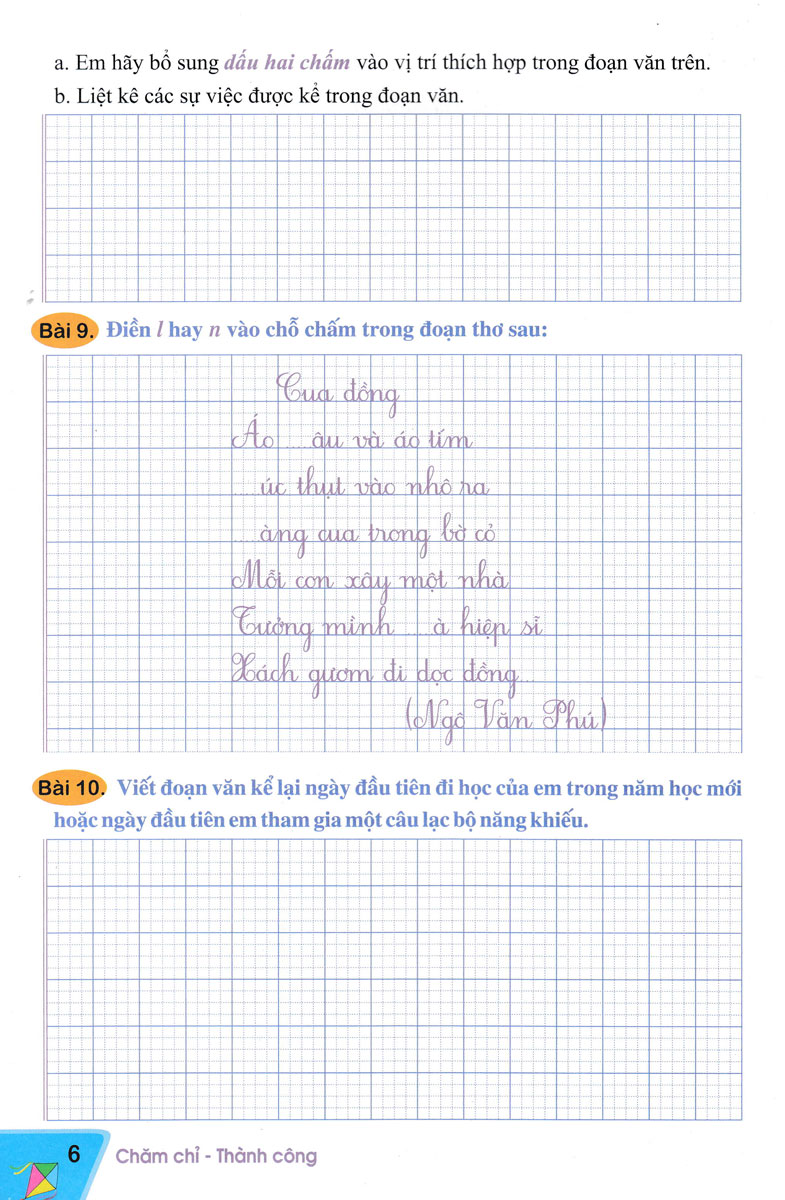 a. Em hãy bổ sung dấu hai chấm vào vị trí thích hợp trong đoạn văn trên.
b. Liệt kê các sự việc được kể trong đoạn văn.
Bài 9. Điền l hay n vào chỗ chấm trong đoạn thơ sau:
Cua đồng
Áo ....âu và áo tím
....úc thụt vào nhô ra
....àng cua trong bờ cỏ
Mỗi con xây một nhà
Tưởng mình ....à hiệp sĩ
Xách gươm đi dọc đồng...
(Ngô Văn Phú)
Bài 10. Viết đoạn văn kể lại ngày đầu tiên đi học của em trong năm học mới
hoặc ngày đầu tiên em tham gia một câu lạc bộ năng khiếu.
6 Chăm chỉ - Thành công